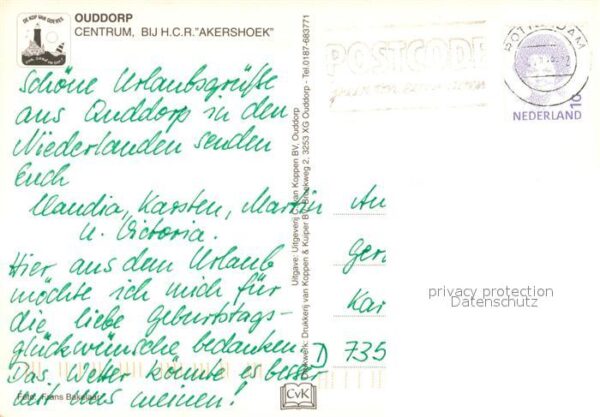 DE KOP VAN GOEREE
OUDDORP
CENTRUM, BIJ H.C.R. "AKERSHOEK"
Schöne Urlaubsgrüße
aus Ouddorp in den
Niederlanden senden
Euch
Claudia, Karsten, Martin
u. Victoria.
Hier aus dem Urlaub
möchte ich mich für
die liebe Geburtstags-
glückwünsche bedanken.
Das Wetter könnte es besser
mit uns meinen!
Foto: Frans Bakelaar
Uitgave: Uitgeverij C. van Koppen BV, Ouddorp
Drukwerk: Drukkerij van Koppen & Kuiper BV, Broekweg 2, 3253 XG Ouddorp - Tel. 0187-683771
CvK
POSTCODE
ROTTERDAM
NEDERLAND
An
Ger
Kar
D 735
privacy protection
Datenschutz